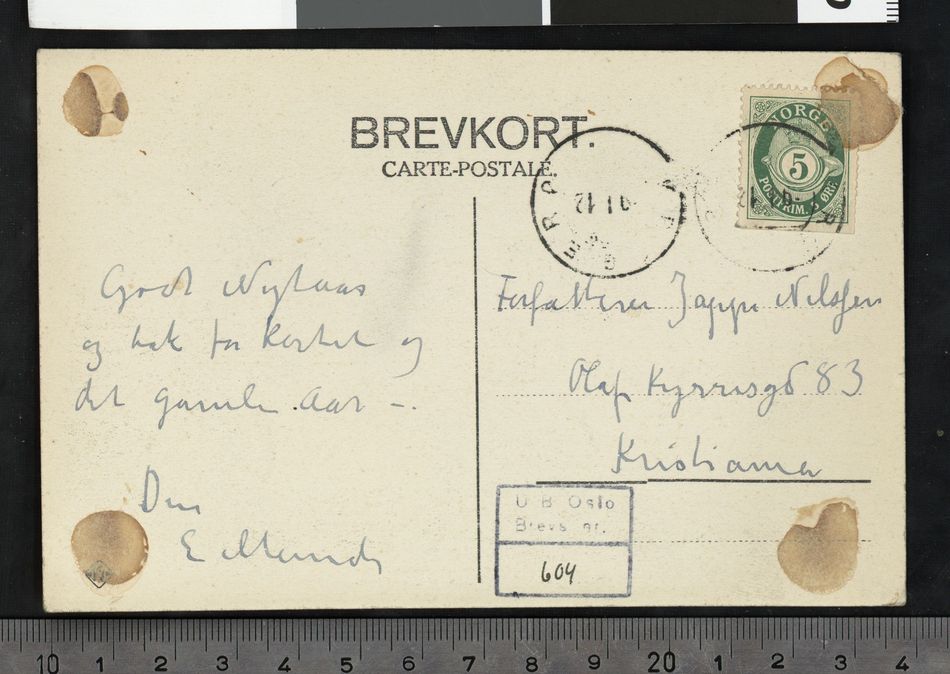 BREVKORT.
CARTE-POSTALE.
NORGE
5
POSTFRIM. 5 ØRE
Godt Nytaar
og tak for kortet og
det gamle Aar –.
Din
E Munch
Forfatteren Jappe Nilssen
Olaf Kyrresgd 83
Kristiania
U B Oslo
Brevs. nr.
604
10 1 2 3 4 5 6 7 8 9 20 1 2 3 4